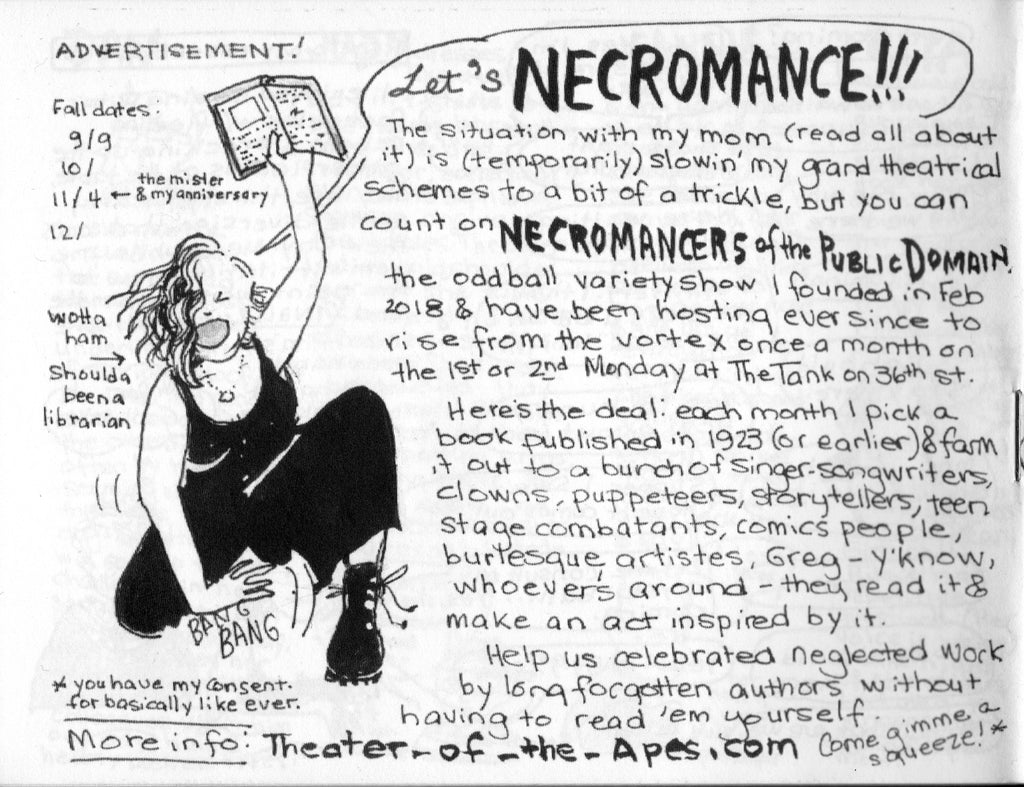 ADVERTISEMENT!
Let's NECROMANCE!!!
Fall dates:
9/9
10/
11/4 ← the mister & my anniversary
12/
wotta
ham
→
Shoulda
been a
librarian
BANG
BANG
The situation with my mom (read all about
it) is (temporarily) slowin' my grand theatrical
schemes to a bit of a trickle, but you can
count on NECROMANCERS of the PUBLIC DOMAIN,
the oddball variety show I founded in Feb
2018 & have been hosting ever since to
rise from the vortex once a month on
the 1st or 2nd Monday at The Tank on 36th st.
Here's the deal: each month I pick a
book published in 1923 (or earlier) & farm
it out to a bunch of singer-songwriters,
clowns, puppeteers, storytellers, teen
stage combatants, comics people,
burlesque artistes, Greg - y'know,
whoever's around - they read it &
make an act inspired by it.
Help us celebrated neglected work
by long forgotten authors without
having to read 'em yourself.
Come gimme a
squeeze! *
* you have my consent.
for basically like ever.
More info: Theater-of-the-Apes.com